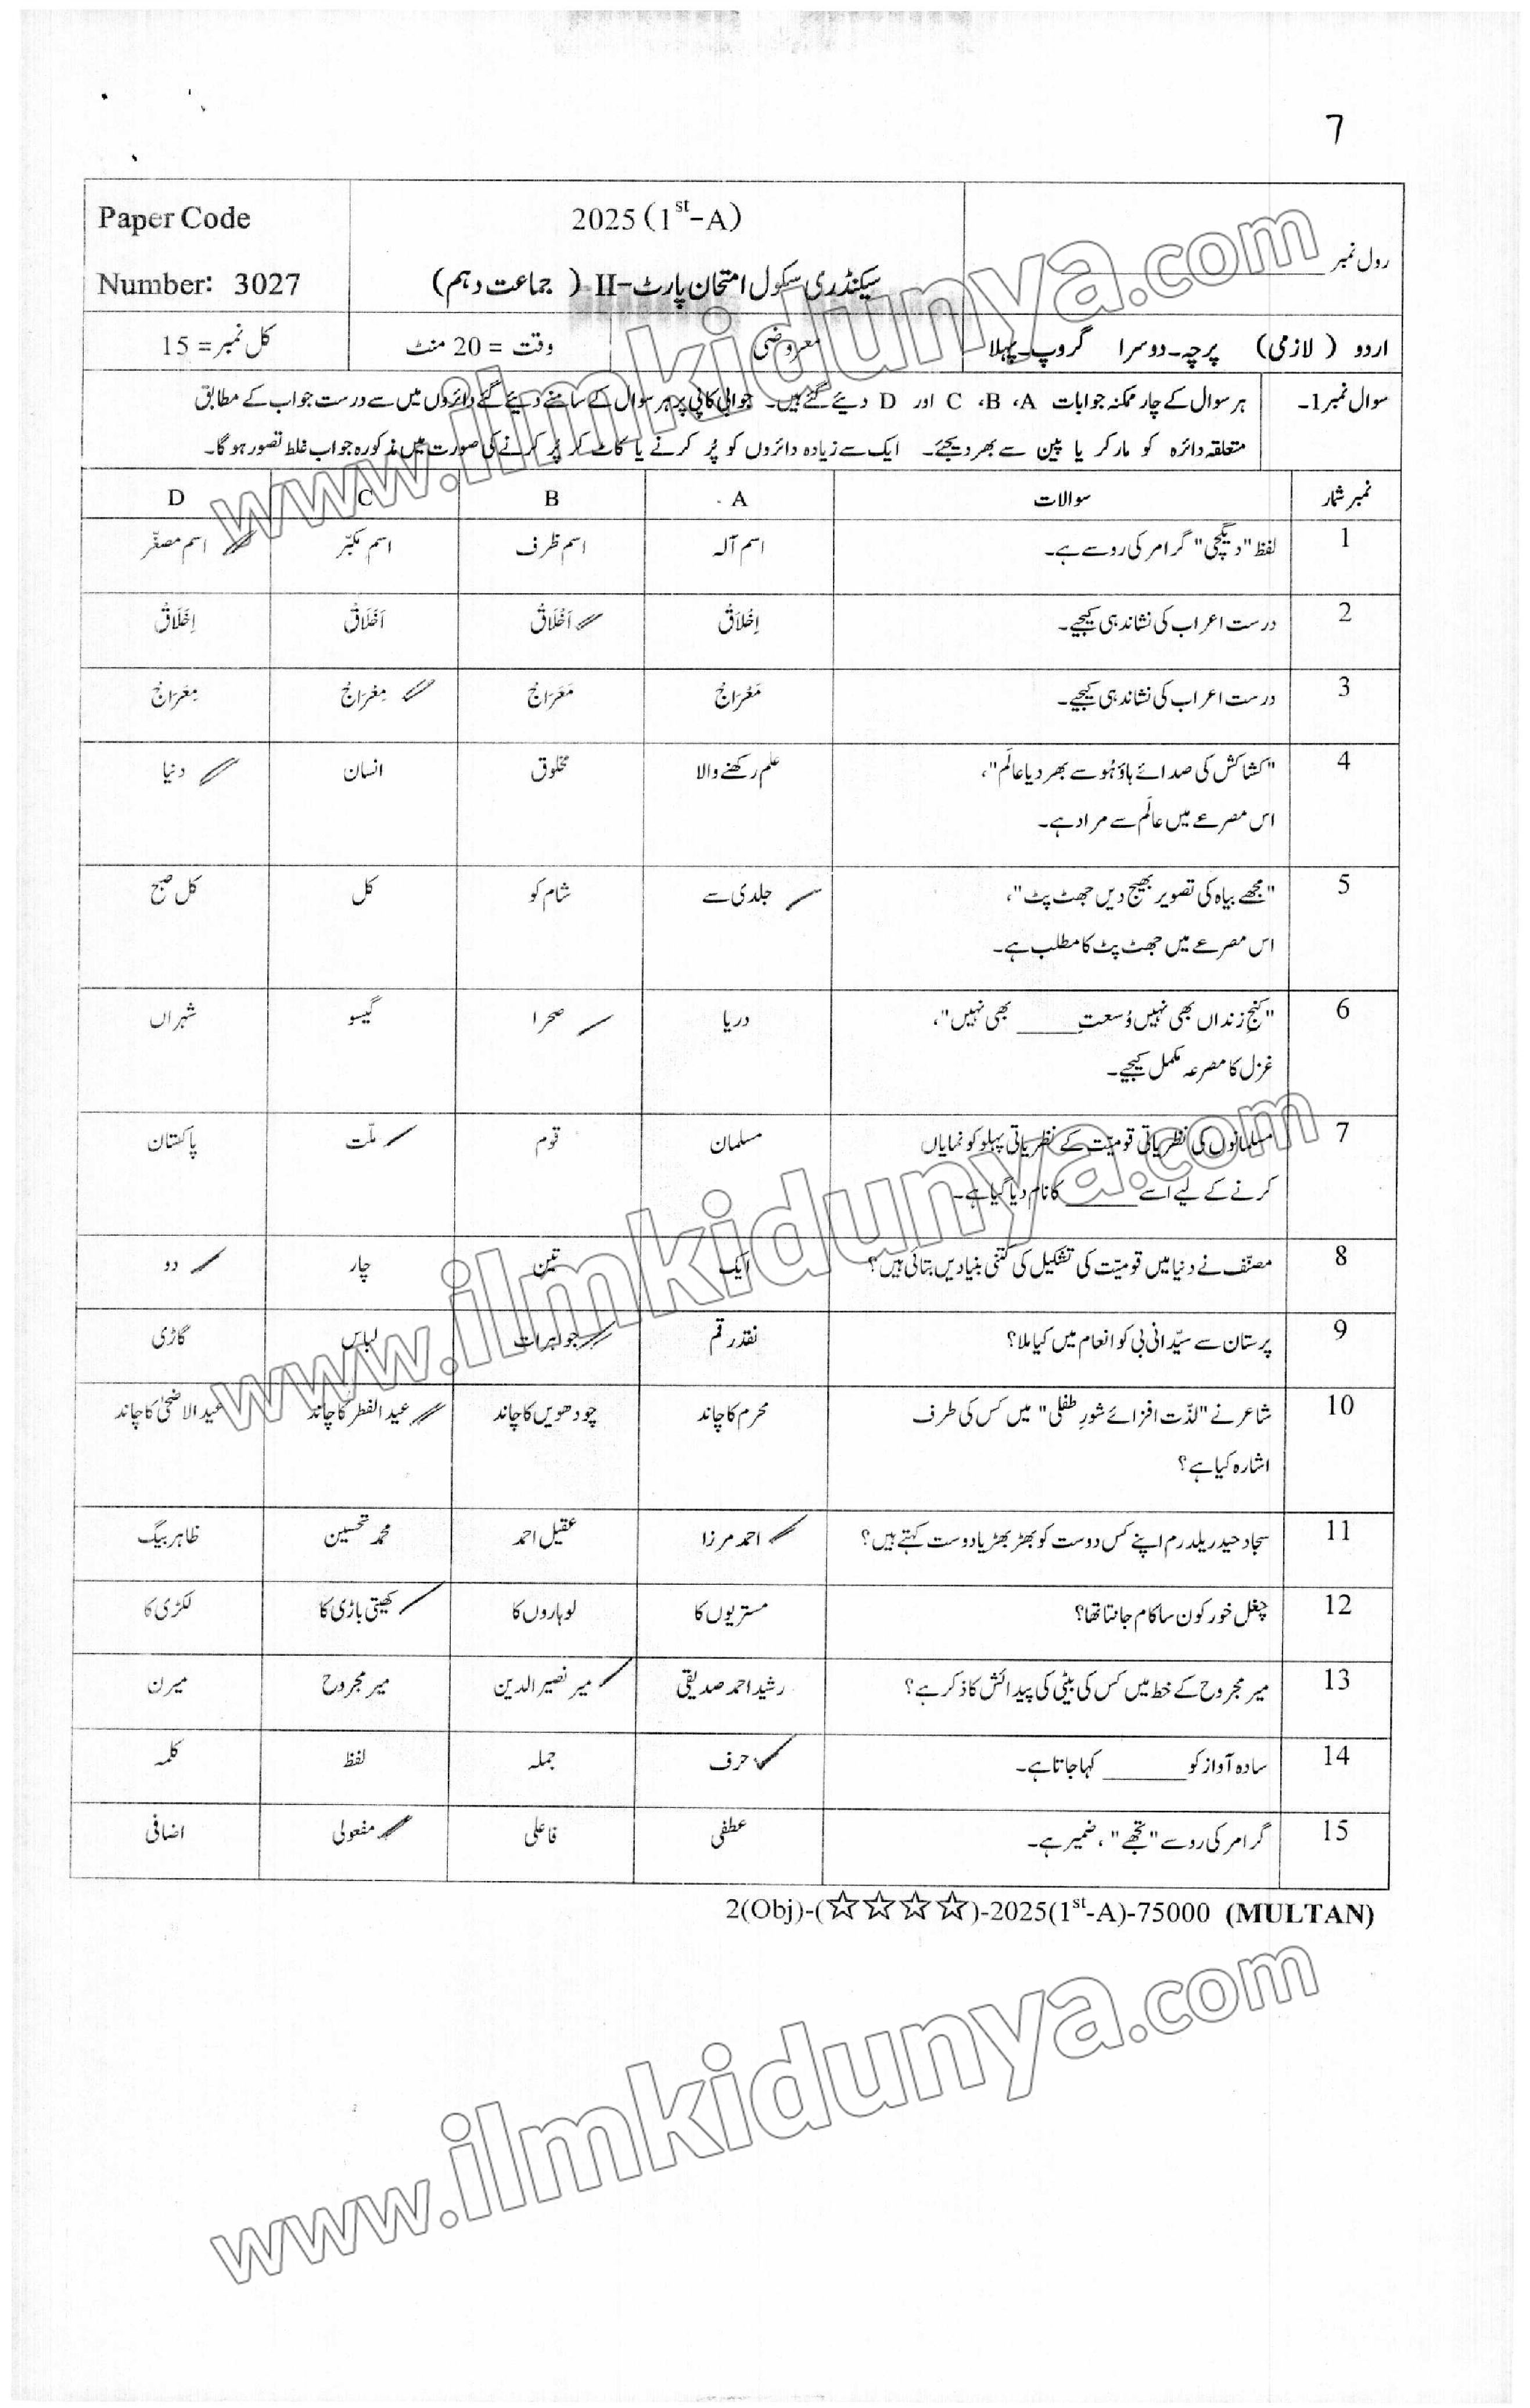 7
Paper Code
Number: 3027
2025 (1st-A)
سیکنڈری سکول امتحان پارٹ-II ( جماعت دہم)
رول نمبر
اردو ( لازمی) پرچہ۔دوسرا گروپ۔پہلا
معروضی
وقت = 20 منٹ
کل نمبر = 15
سوال نمبر 1۔ ہر سوال کے چار ممکنہ جوابات A، B، C اور D دیئے گئے ہیں۔ جوابی کاپی پر ہر سوال کے سامنے دیئے گئے دائروں میں سے درست جواب کے مطابق
متعلقہ دائرہ کو مارکر یا پین سے بھر دیجئے۔ ایک سے زیادہ دائروں کو پُر کرنے یا کاٹ کر پُر کرنے کی صورت میں مذکورہ جواب غلط تصور ہو گا۔
نمبر شمار سوالات A B C D
1 لفظ "دیگچی" گرامر کی رو سے ہے۔ اسم آلہ اسم ظرف اسم مکبّر اسم مصغّر
2 درست اعراب کی نشاندہی کیجیے۔ اِخْلَاقْ اَخْلَاقْ اَخَلَاقْ اِخَلَاقْ
3 درست اعراب کی نشاندہی کیجیے۔ مَعْرَاجْ مَعَرَاجْ مِعْرَاجْ مِعَرَاجْ
4 "کشاکش کی صدائے ہاؤہُو سے بھر دیا عالَم"، علم رکھنے والا مخلوق انسان دنیا
اس مصرعے میں عالَم سے مراد ہے۔
5 "مجھے بیاہ کی تصویر بھیج دیں جھٹ پٹ"، جلدی سے شام کو کل کل صبح
اس مصرعے میں جھٹ پٹ کا مطلب ہے۔
6 "کنجِ زنداں بھی نہیں وُسعتِ _____ بھی نہیں"، دریا صحرا گیسو شہراں
غزل کا مصرعہ مکمل کیجیے۔
7 مسلمانوں کی نظریاتی قومیّت کے نظریاتی پہلو کو نمایاں مسلمان قوم ملّت پاکستان
کرنے کے لیے اسے _____ کا نام دیا گیا ہے۔
8 مصنّف نے دنیا میں قومیّت کی تشکیل کی کتنی بنیادیں بتائی ہیں؟ ایک تین چار دو
9 پرستان سے سیّدانی بی کو انعام میں کیا ملا؟ نقد رقم جواہرات لباس گاڑی
10 شاعر نے "لذّت افزائے شورِ طفلی" میں کس کی طرف محرم کا چاند چودھویں کا چاند عید الفطر کا چاند عید الاضحیٰ کا چاند
اشارہ کیا ہے؟
11 سجاد حیدر یلدرم اپنے کس دوست کو بھڑ بھڑیا دوست کہتے ہیں؟ احمد مرزا عقیل احمد محمد تحسین ظاہر بیگ
12 چغل خور کون سا کام جانتا تھا؟ مستریوں کا لوہاروں کا کھیتی باڑی کا لکڑی کا
13 میر مجروح کے خط میں کس کی بیٹی کی پیدائش کا ذکر ہے؟ رشید احمد صدیقی میر نصیر الدین میر مجروح میرن
14 سادہ آواز کو ______ کہا جاتا ہے۔ حرف جملہ لفظ کلمہ
15 گرامر کی رو سے "تجھے"، ضمیر ہے۔ عطفی فاعلی مفعولی اضافی
2(Obj)-(☆☆☆☆)-2025(1st-A)-75000 (MULTAN)
www.ilmkidunya.com
www.ilmkidunya.com
www.ilmkidunya.com